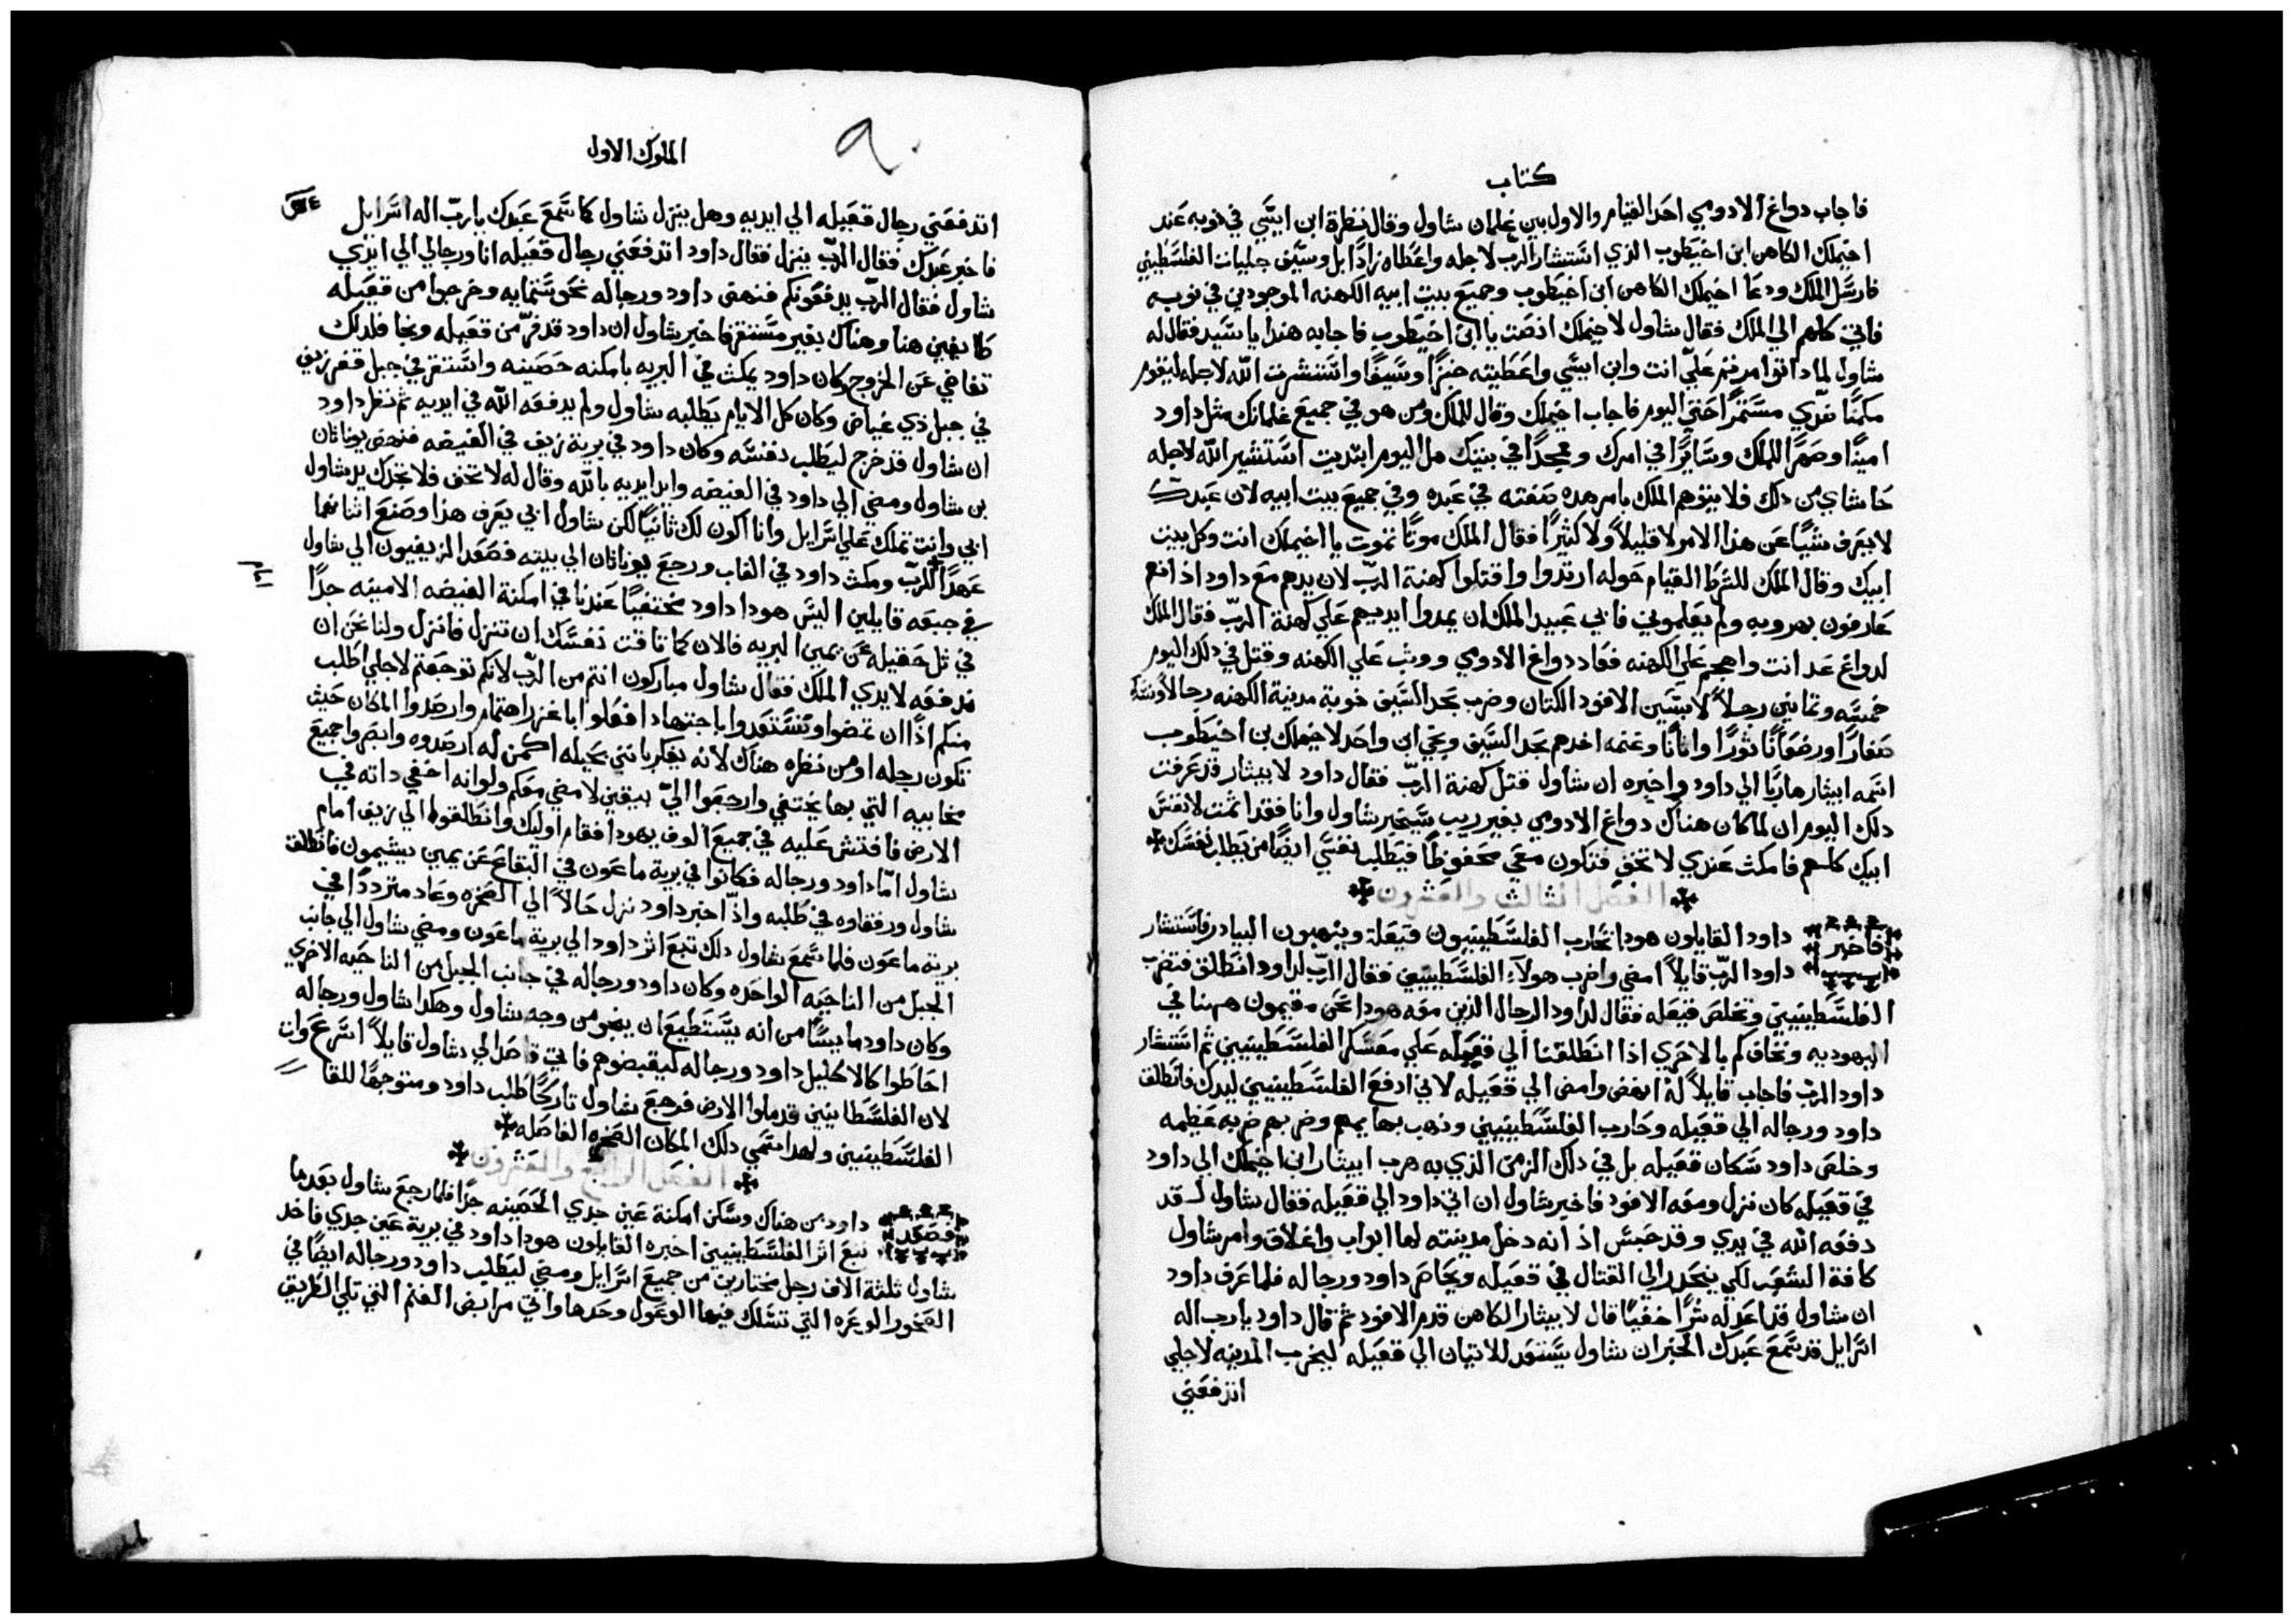 كتاب
فاجاب دواغ الادومي احد القيام والاول بين غلمان شاول وقال نظرة ابن ايسي في نوبه عند
اخيملك الكاهن ابن اخيطوب الذي استشار الرب لاجله واعطاه زادا بل وسيف جليات الفلسطيني
فارسل الملك ودعا اخيملك الكاهن ابن اخيطوب وجميع بيت ابيه الكهنه الموجودين في نوبه
فاتي كلهم الي الملك فقال شاول لاخيملك انصت يا ابن اخيطوب فاجابه هندا يا سيد فقال له
شاول لماذا توامرتم علي انت وابن ايسي واعطيته خبزا وسيفا واستشرت الله لاجله ليقوم
مكمنا ضدي مستمرا حتي اليوم فاجاب اخيملك وقال للملك ومن هو في جميع غلمانك مثل داود
امينا وصهرا للملك وسايرا في امرك وممجدا في بيتك هل اليوم ابتديت استشير الله لاجله
حاشاي من دلك فلا يتوهم الملك بامر هده صفته في عبده وفي جميع بيت ابيه لان عبدك
لا يعرف شيا عن هدا الامر لا قليلا ولا كثيرا فقال الملك موتا تموت يا اخيملك انت وكل بيت
ابيك وقال الملك للشرط القيام حوله ارتدوا واقتلوا كهنة الرب لان يدهم مع داود اذ انهم
عارفون بهروبه ولم يعلموني فابي عبيد الملك ان يمدوا ايديهم علي كهنة الرب فقال الملك
لدواغ عد انت واهجم علي الكهنه فعاد دواغ الادومي ووثب علي الكهنه وقتل في دلك اليوم
خمسه وثمانين رجلا لابسين الافود الكتان وضرب بحد السيف نوبة مدينة الكهنه رجالا ونسا
صغارا ورضعانا ثورا واتانا وغنمه اخدهم بحد السيف ونجي ابن واحد لاخيملك بن اخيطوب
اسمه ابيثار هاربا الي داود واخبره ان شاول قتل كهنة الرب فقال داود لابيثار قد عرفت
دلك اليوم ان لما كان هناك دواغ الادومي بغير ريب سيخبر شاول وانا فقد اثمت لانفس
ابيك كلهم فامكث عندي لا تخف فتكون معي محفوظا فيطلب نفسي ايضا من يطلب نفسك
الفصل الثالث والعشرون
فاخبر داود القايلون هودا تحارب الفلسطينيون قيعلة وينهبون البيادر فاستشار
داود الرب قايلا امضي واضرب هولاء الفلسطينيين فقال الرب لداود انطلق فتضرب
الفلسطينيين وتخلص قيعله فقال لداود الرجال الذين معه هودا نحن مقيمون ههنا في
اليهوديه ونخاف كم بالاحري اذا انطلقنا الي قعيله علي معسكر الفلسطينيين ثم استشار
داود الرب فاجاب قايلا له انهض وامض الي قعيله لاني ادفع الفلسطينيين ليدك فانطلق
داود ورجاله الي قعيله وحارب الفلسطينيين ونهب بهايمهم وضربهم ضربه عظيمه
وخلص داود سكان قعيله بل في دلك الزمن الذي به هرب ابيثار ابن اخيملك الي داود
في قعيله كان نزل ومعه الافود فاخبر شاول ان اتي داود الي قعيله فقال شاول لقد
دفعه الله في يدي وقد حبس اذ انه دخل مدينته لها ابواب واغلاق وامر شاول
كافة الشعب لكي ينحدر الي القتال في قعيله ويحاصر داود ورجاله فلما عرف داود
ان شاول قد اعد له شرا خفيا قال لابيثار الكاهن قدم الافود ثم قال داود يا رب اله
اسرايل قد سمع عبدك الخبر ان شاول يستعد للاتيان الي قعيله ليخرب المدينه لاجلي
اتدفعني
الملوك الاول
اتدفعني رجال قعيله الي ايديه وهل ينزل شاول كما سمع عبدك يا رب اله اسرايل
فاخبر عبدك فقال الرب ينزل فقال داود اتدفعني رجال قعيله انا ورجالي الي ايدي
شاول فقال الرب يدفعونكم فنهض داود ورجاله نحو ستمايه وخرجوا من قعيله
طايفين هنا وهناك بغير مستقر فاخبر شاول ان داود قد فر من قعيله ونجا فلدلك
تغاضي عن الخروج وكان داود يمكث في البريه بامكنه حصينه واستقر في جبل قفر زيف
في جبل ذي غياض وكان كل الايام يطلبه شاول ولم يدفعه الله في ايديه ثم نظر داود
ان شاول قد خرج ليطلب نفسه وكان داود في برية زيف في الغيضه فنهض يوناثان
بن شاول ومضي الي داود في الغيضه وايد ايديه بالله وقال له لا تخف فلا تجدك يد شاول
ابي وانت تملك علي اسرايل وانا اكون لك ثانيا لكن شاول ابي يعرف هذا وصنع اثناهما
عهدا للرب ومكث داود في الغاب ورجع يوناثان الي بيته فصعد الزيفيون الي شاول
في جبعه قايلين اليس هودا داود مختفيا عندنا في امكنة الغيضه الامينه جدا
في تل حقيله عن يمين البريه فالان كما تاقت نفسك ان تنزل فانزل ولنا نحن ان
ندفعه لايدي الملك فقال شاول مباركون انتم من الرب لانكم توجعتم لاجلي اطلب
منكم اذا ان تمضوا وتستعدوا باجتهاد افعلوا باغزر اهتمام وارصدوا المكان حيث
تكون رجله او من نظره هناك لانه يفكر بانني بحيله اكمن له ارصدوه وابصروا جميع
مخابيه التي بها يختفي وارجعوا الي بيقين لامضي معكم ولو انه اخفي داته في
الارض فافتش عليه في جميع الوف يهودا فقام اوليك وانطلقوا الي زيف امام
شاول اما داود ورجاله فكانوا في برية ماعون في البقاع عن يمين يشيمون فانطلق
شاول ورفقاوه في طلبه واذ اخبر داود نزل حالا الي الصخره وعاد مترددا في
برية ماعون فلما سمع شاول دلك تبع اثر داود الي برية ماعون ومضي شاول الي جانب
الجبل من الناحيه الواحده وكان داود ورجاله في جانب الجبل من الناحيه الاخري
وكان داود مايسا من انه يستطيع ان ينجو من وجه شاول وهكدا شاول ورجاله
احاطوا كالاكليل داود ورجاله ليقبضوهم فاتي قاصد الي شاول قايلا اسرع وات
لان الفلسطانيين قد ملوا الارض فرجع شاول تاركا طلب داود ومتوجها للقا
الفلسطينيين ولهدا سمي دلك المكان الصخره الفاصله
الفصل الرابع والعشرون
فصعد داود من هناك وسكن امكنة عين جدي الحصينه جدا فلما رجع شاول بعدما
تبع اثر الفلسطينيين اخبره القايلون هودا داود في برية عين جدي فاخد
شاول ثلثة الاف رجل مختارين من جميع اسرايل ومضي ليطلب داود ورجاله ايضا في
الصخور الوعره التي تسلك فيها الوعول وحدها واتي مرابض الغنم التي تلي الطريق